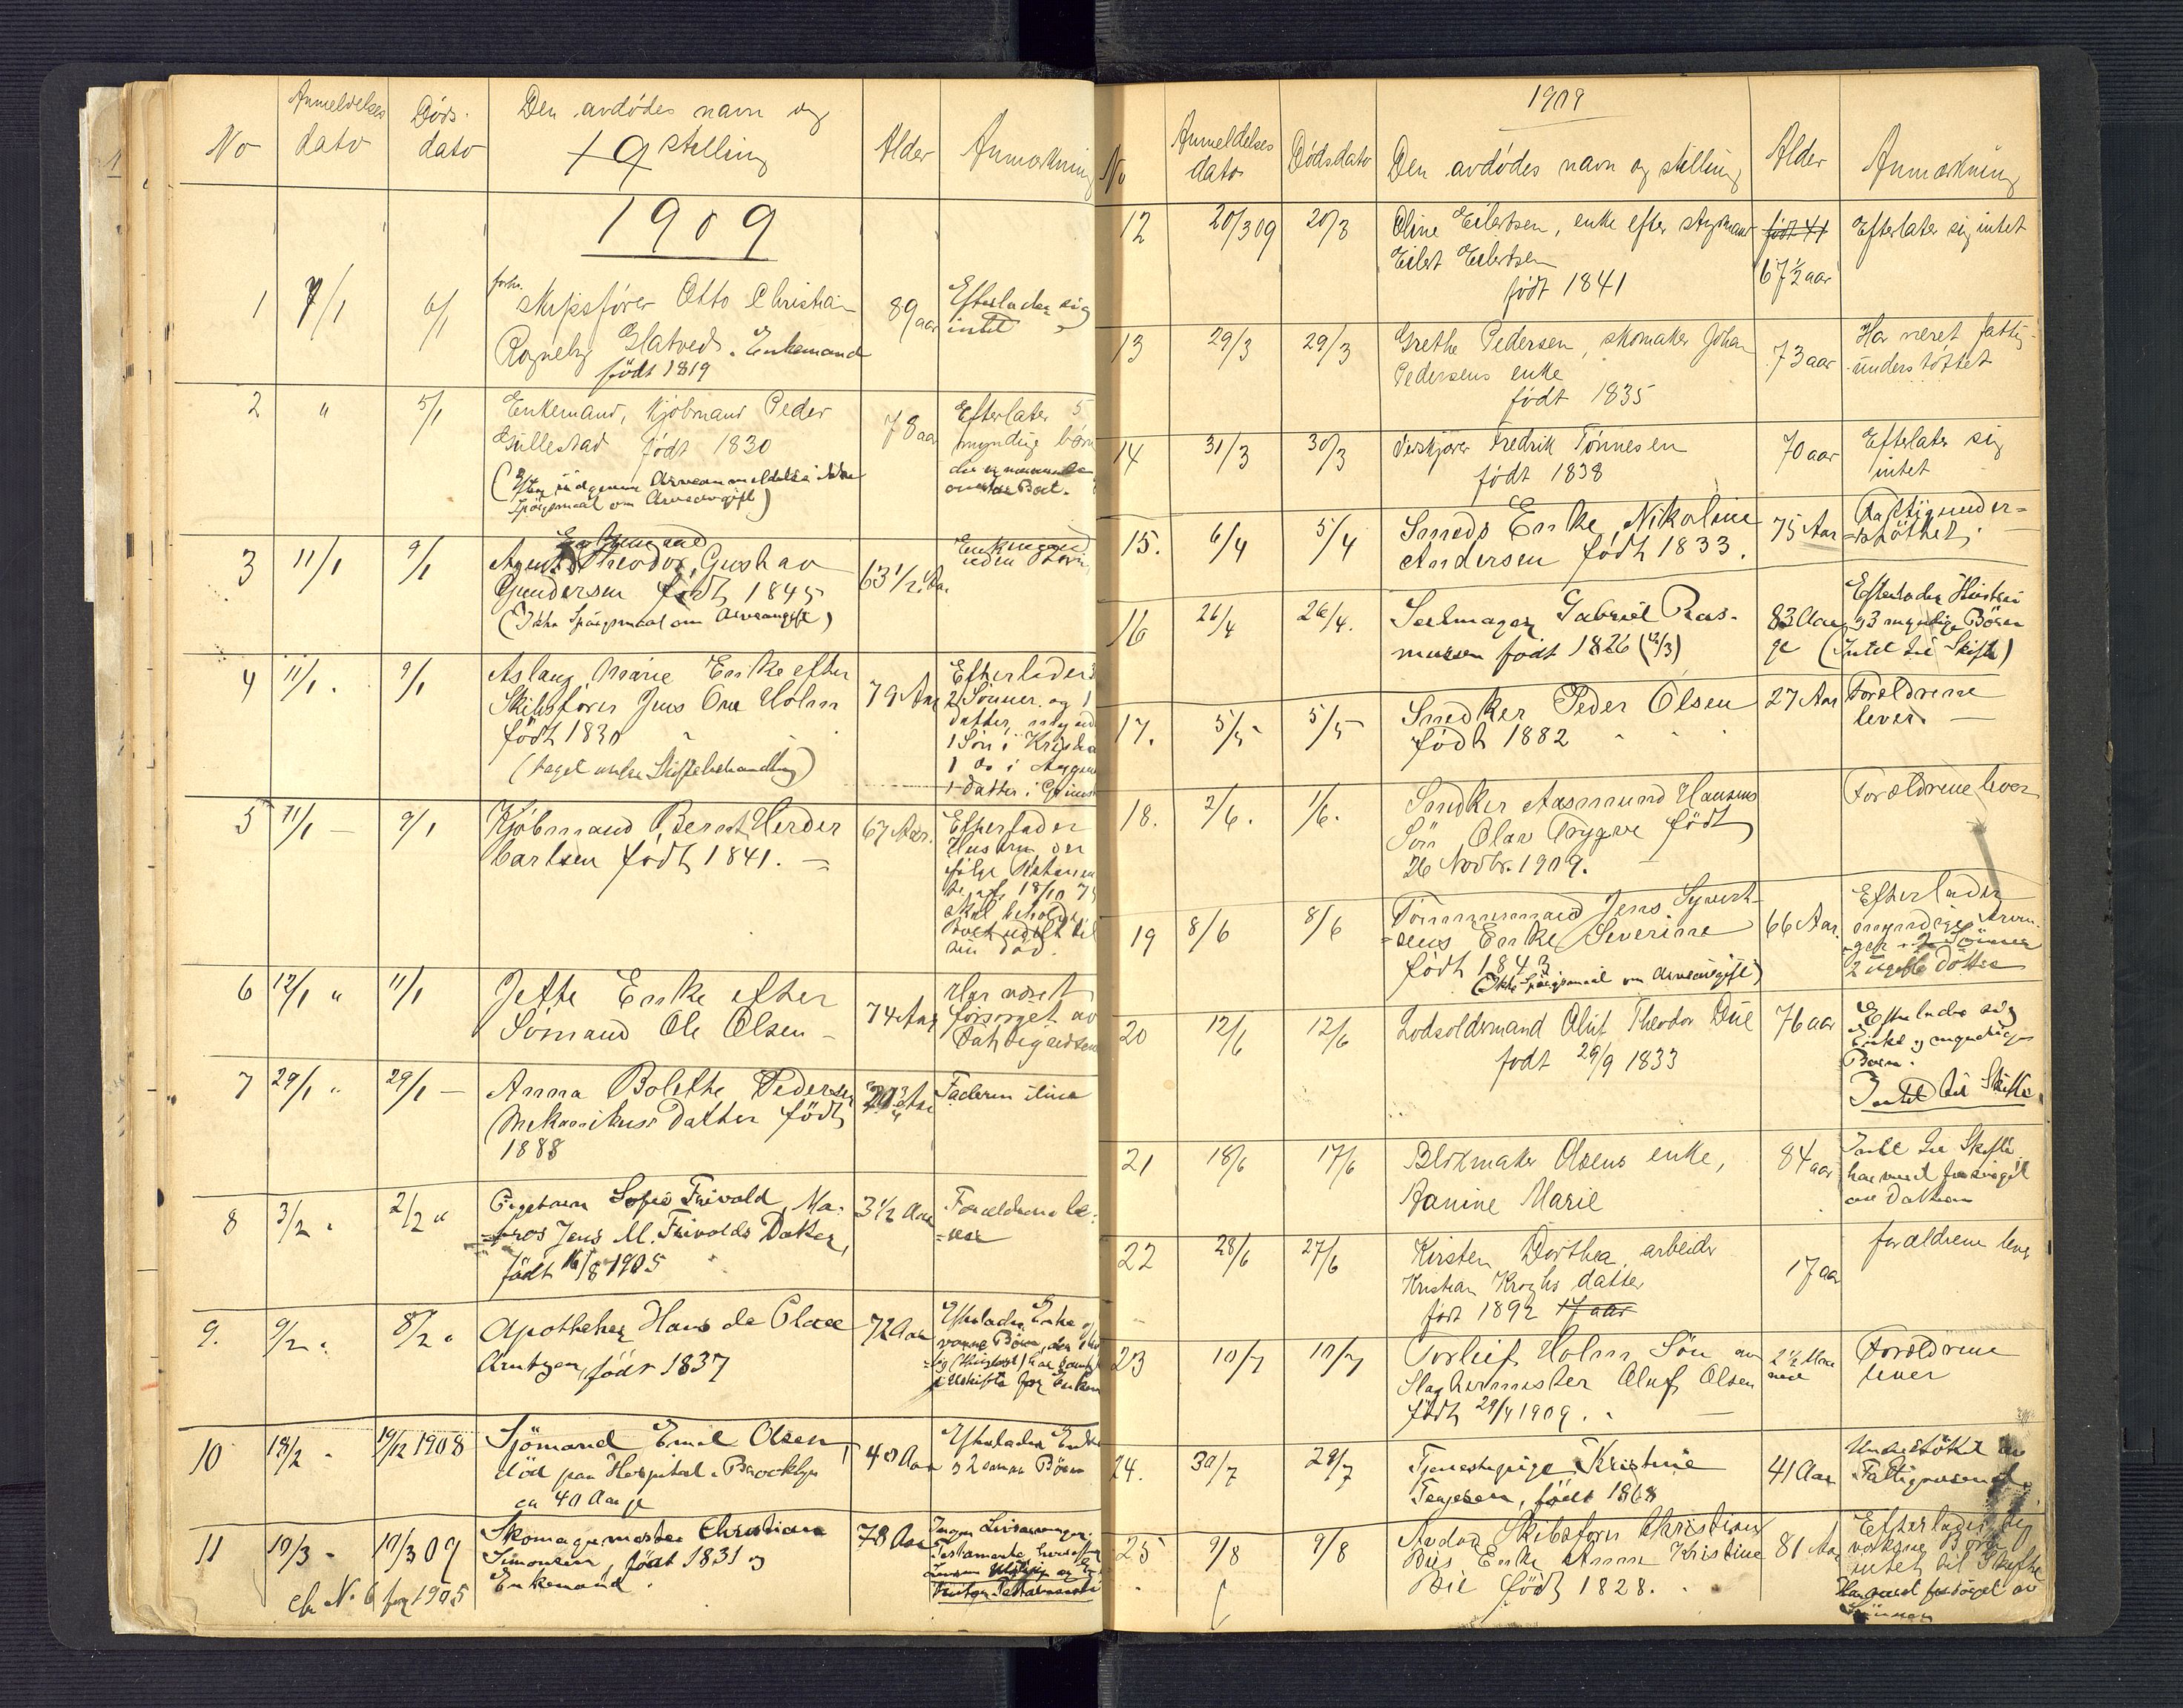 No
Anmeldelses dato
Døds-dato
Den avdødes navn og stilling
Alder
Anmærkning
19
1909
1 7/1 6/1
forhv. skipsfører Otto Christian
Rogneby Glatved. Enkemand
født 1819
89 aar
Efterlader sig
intet
2 " 5/1
Enkemand, kjøbmand Peder
Gullestad født 1830
Spörgsmaal om Arveavgift)
78 aar
Efterlater 5
myndige børn
3 11/1 9/1
Enkemand
Agent Theodor Gustav
Gundersen født 1845
(Ikke Spörgsmaal om Arveavgift)
63 1/2 Aar
Enkemand
uden Børn
4 11/1. 9/1
Aslaug Marie Enke efter
Skibsfører Jens Holm
født 1830
(taget under Skiftebehandling)
79 Aar
Efterlader
2 Sønner og 1
datter, mynd
1 Søn i Kristia
1 do i
1 datter i Grimst
5 11/1 – 9/1
Kjøbmand Bernt Herder
Carlsen født 1841. –
67 Aar.
Efterlader
Hustru der
ifølge
skal beholde
Boet udelt til
sin død.
6 12/1 " 11/1
Jette Enke efter
Sømand Ole Olsen –
74 Aar
Har været
forsørget av
Fattigvæsen
7 29/1 " 29/1 –
Anna Bolethe Pedersen
Mekanikus Datter født
1888
Faderen ilive
8 3/2 " 2/2 "
Pigebarn Sofie Frivold, Ma-
=tros Jens M. Frivolds Datter,
født 16/8 1905
3 1/2 Aar
Forældrene le-
=ver
9. 9/2 " 8/2 "
Apotheker Hans de Place
Arntzen, født 1837
72 Aar
Efterlader Enke og
voxne Børn, der
i Uskifte for Enken
10 18/2 " 19/12 1908
Sjömand Emil Olsen,
död paa Hospital i Brooklyn
ca 40 Aar gl
40 Aar
Efterlader Enke
og 2 Börn
11 10/3 " 10/3 09
Skomagermester Christian
Simonsen, født 1831 og
Enkemand.
cfr No. 6 for 1905
78 Aar
Ingen Livsarvinger;
Testamente
1909
No
Anmeldelses dato
Dødsdato
Den avdødes navn og stilling
Alder
Anmærkning
12 20/3 09 20/3
Oline Eilertsen, enke efter styrmand
Eilert Eilertsen
født 1841
født 41
67 1/2 aar
Efterlater sig intet
13 29/3 29/3
Grethe Pedersen, skomaker Johan
Pedersens enke
født 1835
73 aar
Har været fattig-
understøttet
14 31/3 30/3
Fredrik Tønnesen
født 1838
70 aar
Efterlater sig
intet
15. 6/4 5/4
Smeds Enke Nikoline
Andersen født 1833.
75 Aar
Fattigunder=
=støttet.
16 26/4 26/4.
Seilmager Gabriel Ras-
mussen født 1826 (12/3)
83 Aar
gl
Efterlader Hustru
og 3 myndige Börn
(Intet til Skifte)
17. 5/5 5/5
Snedker Peder Olsen
født 1882
27 Aar
Forældrene
lever. –
18. 2/6. 1/6.
Snedker Aasmund Hansens
Søn Olav Trygve født
26 Novbr. 1909.
Forældrene lever
19 8/6 8/6
Tømmermand Jens Syvert-
=sens Enke Severine
født 1843
(Ikke Spörgsmaal om Arveavgift)
66 Aar.
Efterlader
myndige Arvin-
2 ugifte Døttre
20 12/6 12/6
Lodsoldermand Oluf Theodor Due
født 29/9 1833
76 aar
Efterlader sig
Enke og myndige
Börn.
Intet til Skifte.
21 18/6 17/6
Blokmaker Olsens enke,
Janine Marie
84 aar
Intet til Skifte
har været forsörget
av Datteren
22 28/6 27/6
Kirsten Dorthea, arbeider
Kristian Kroghs datter
født 1892 17 aar
17 aar
forældrene lever
23 10/7 10/7
Torleif Holm Søn av
Slagtermester Oluf Olsen
født 29/4 1909.
2 1/2 Maa
neder
Forældrene
lever
24. 30/7 28/7
Tjenestepige Kristine
Terjesen, født 1868
41 Aar
Understöttet av
Fattigvæsenet.
25 9/8 9/8
Avdød Skibsfører Christian
Bies Enke Anne Kristine
Bie født 1828.
81 Aar
Efterlader
voksne Børn
intet til Skifte
Har været forsörget av
Sönnen